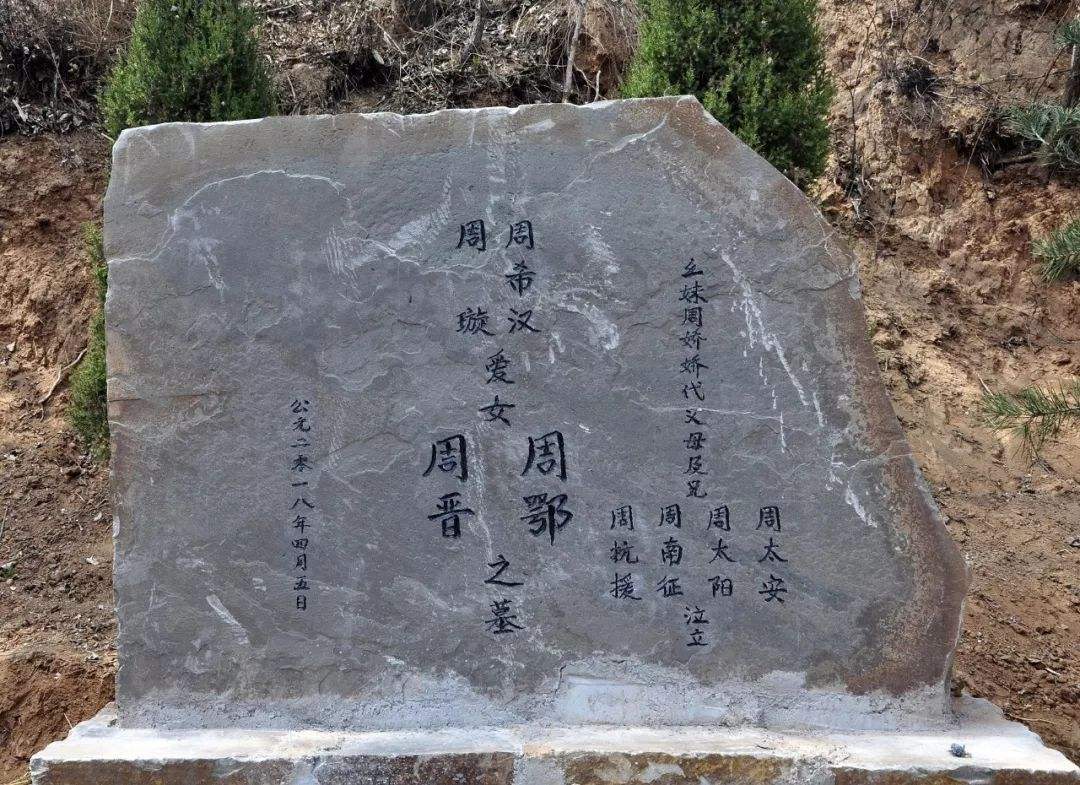 幺妹周娇娇代父母及兄
周太安
周太阳
周南征
周抗援
泣立
周希汉
周璇
爱女
周鄂
周晋
之墓
公元二零一八年四月五日